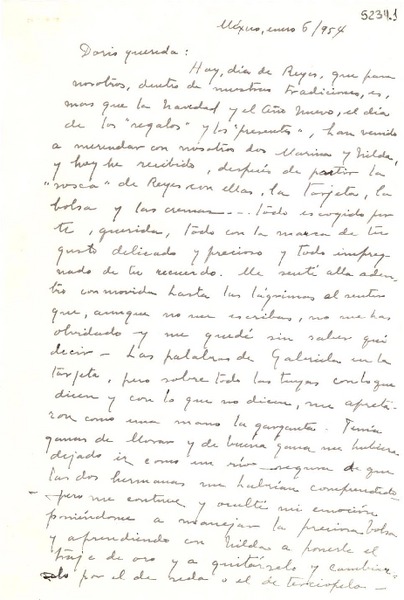 5234.1
México, enero 6/954
Doris querida:
Hoy, día de Reyes, que para
nosotros, dentro de nuestras tradiciones, es,
mas que la Navidad y el Año Nuevo, el día
de los "regalos" y los "presentes", han venido
a merendar con nosotros dos Marina y Hilda,
y hoy he recibido, después de partir la
"rosca" de Reyes con ellas, la tarjeta, la
bolsa y las cremas... todo escogido por
ti, querida, todo con la marca de tu
gusto delicado y precioso y todo impreg-
nado de tu recuerdo. Me sentí allá aden-
tro conmovida hasta las lágrimas al sentir
que, aunque no me escribas, no me has
olvidado y me quedé sin saber qué
decir - Las palabras de Gabriela en la
tarjeta, pero sobre todo las tuyas con lo que
dicen y con lo que no dicen, me apreta-
ron como una mano la garganta. Tenía
ganas de llorar y de buena gana me hubiera
dejado ir como un río segura de que
las dos hermanas me habrían comprendido -
pero me contuve y oculté mi emoción
poniéndome a manejar la preciosa bolsa
y aprendiendo con Hilda a ponerle el
traje de oro y a quitárselo y cambiar-
selo por el de seda o el de terciopelo -